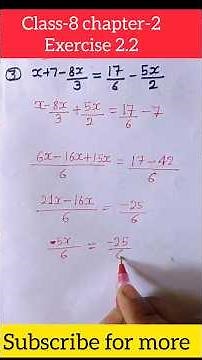 Class-8 chapter-2
Exercise 2.2
③ x+7-8x/3 = 17/6 - 5x/2
x-8x/3+5x/2 = 17/6 - 7
6x-16x+15x/6 = 17-42/6
21x-16x/6 = -25/6
-5x/6 = -25/6
Subscribe for more